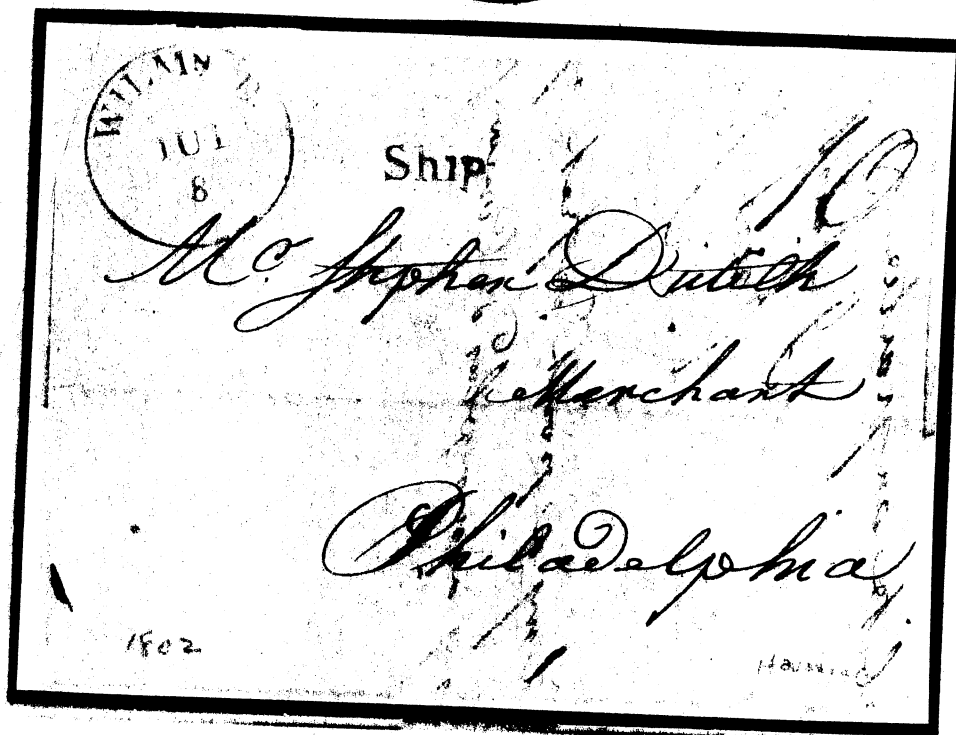 WILMN. D
JUL
8
Ship
10
Mr. Stephen Dutilh
Merchant
Philadelphia
1802